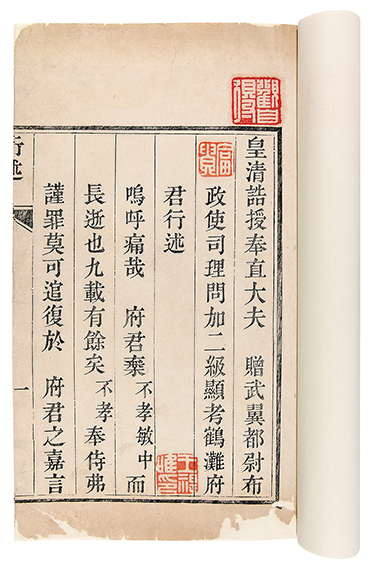 皇清誥授奉直大夫　贈武翼都尉布
政使司理問加二級顯考鶴灘府
君行述
嗚呼痛哉　府君棄不孝敏中而
長逝也九載有餘矣不孝奉侍弗
謹罪莫可逭復於　府君之嘉言
行述
一